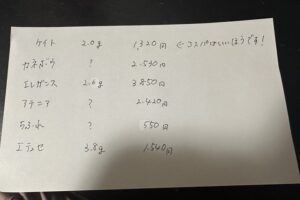 ケイト 2.0g 1,320円 ←コスパはいいほうです!
カネボウ ? 2.530円
エレガンス 2.6g 3850円
アナニア ? 2.420円
ちふれ ? 550円
エテュセ 3.8g 1.540円